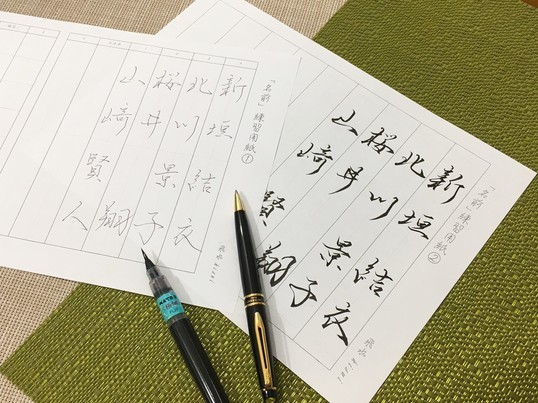 「名前」練習用紙①
新垣 結衣
北川 景子
桜井 翔
山崎 賢人
「名前」練習用紙②
新垣 結衣
北川 景子
桜井 翔
山崎 賢